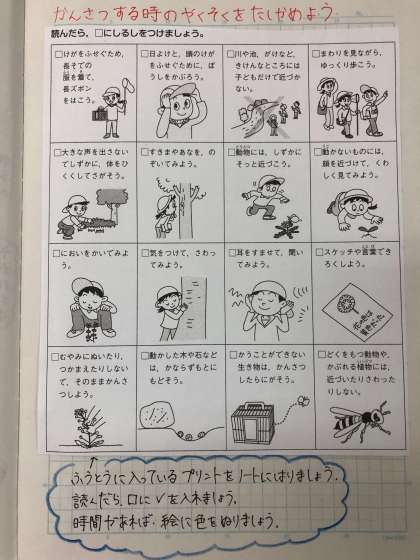 かんさつする時のやくそくをたしかめよう。
読んだら、□にしるしをつけましょう。
□けがをふせぐため、
長そでの
服を着て、
長ズボン
をはこう。
□日よけと、頭のけ
がをふせぐために、ぼ
うしをかぶろう。
□川や池、がけなど、
きけんなところには
子どもだけで近づか
ない。
□まわりを見ながら、
ゆっくり歩こう。
□大きな声を出さない
でしずかに、体をひ
くくしてさがそう。
□すきまやあなを、の
ぞいてみよう。
□動物には、しずかに
そっと近づこう。
□動かないものには、
顔を近づけて、くわ
しく見てみよう。
□においをかいでみよ
う。
□気をつけて、さわっ
てみよう。
□耳をすませて、聞い
てみよう。
□スケッチや言葉でき
ろくしよう。
花の色は
黄色だった
□むやみにぬいたり、
つかまえたりしない
で、そのままかんさ
つしよう。
□動かした木や石など
は、かならずもとに
もどそう。
□かうことができない
生き物は、かんさつ
したらにがそう。
□どくをもつ動物や、
かぶれる植物には、
近づいたりさわった
りしない。
↑
ふうとうに入っているプリントをノートにはりましょう。
読んだら、□に✓を入れましょう。
時間があれば、絵に色をぬりましょう。